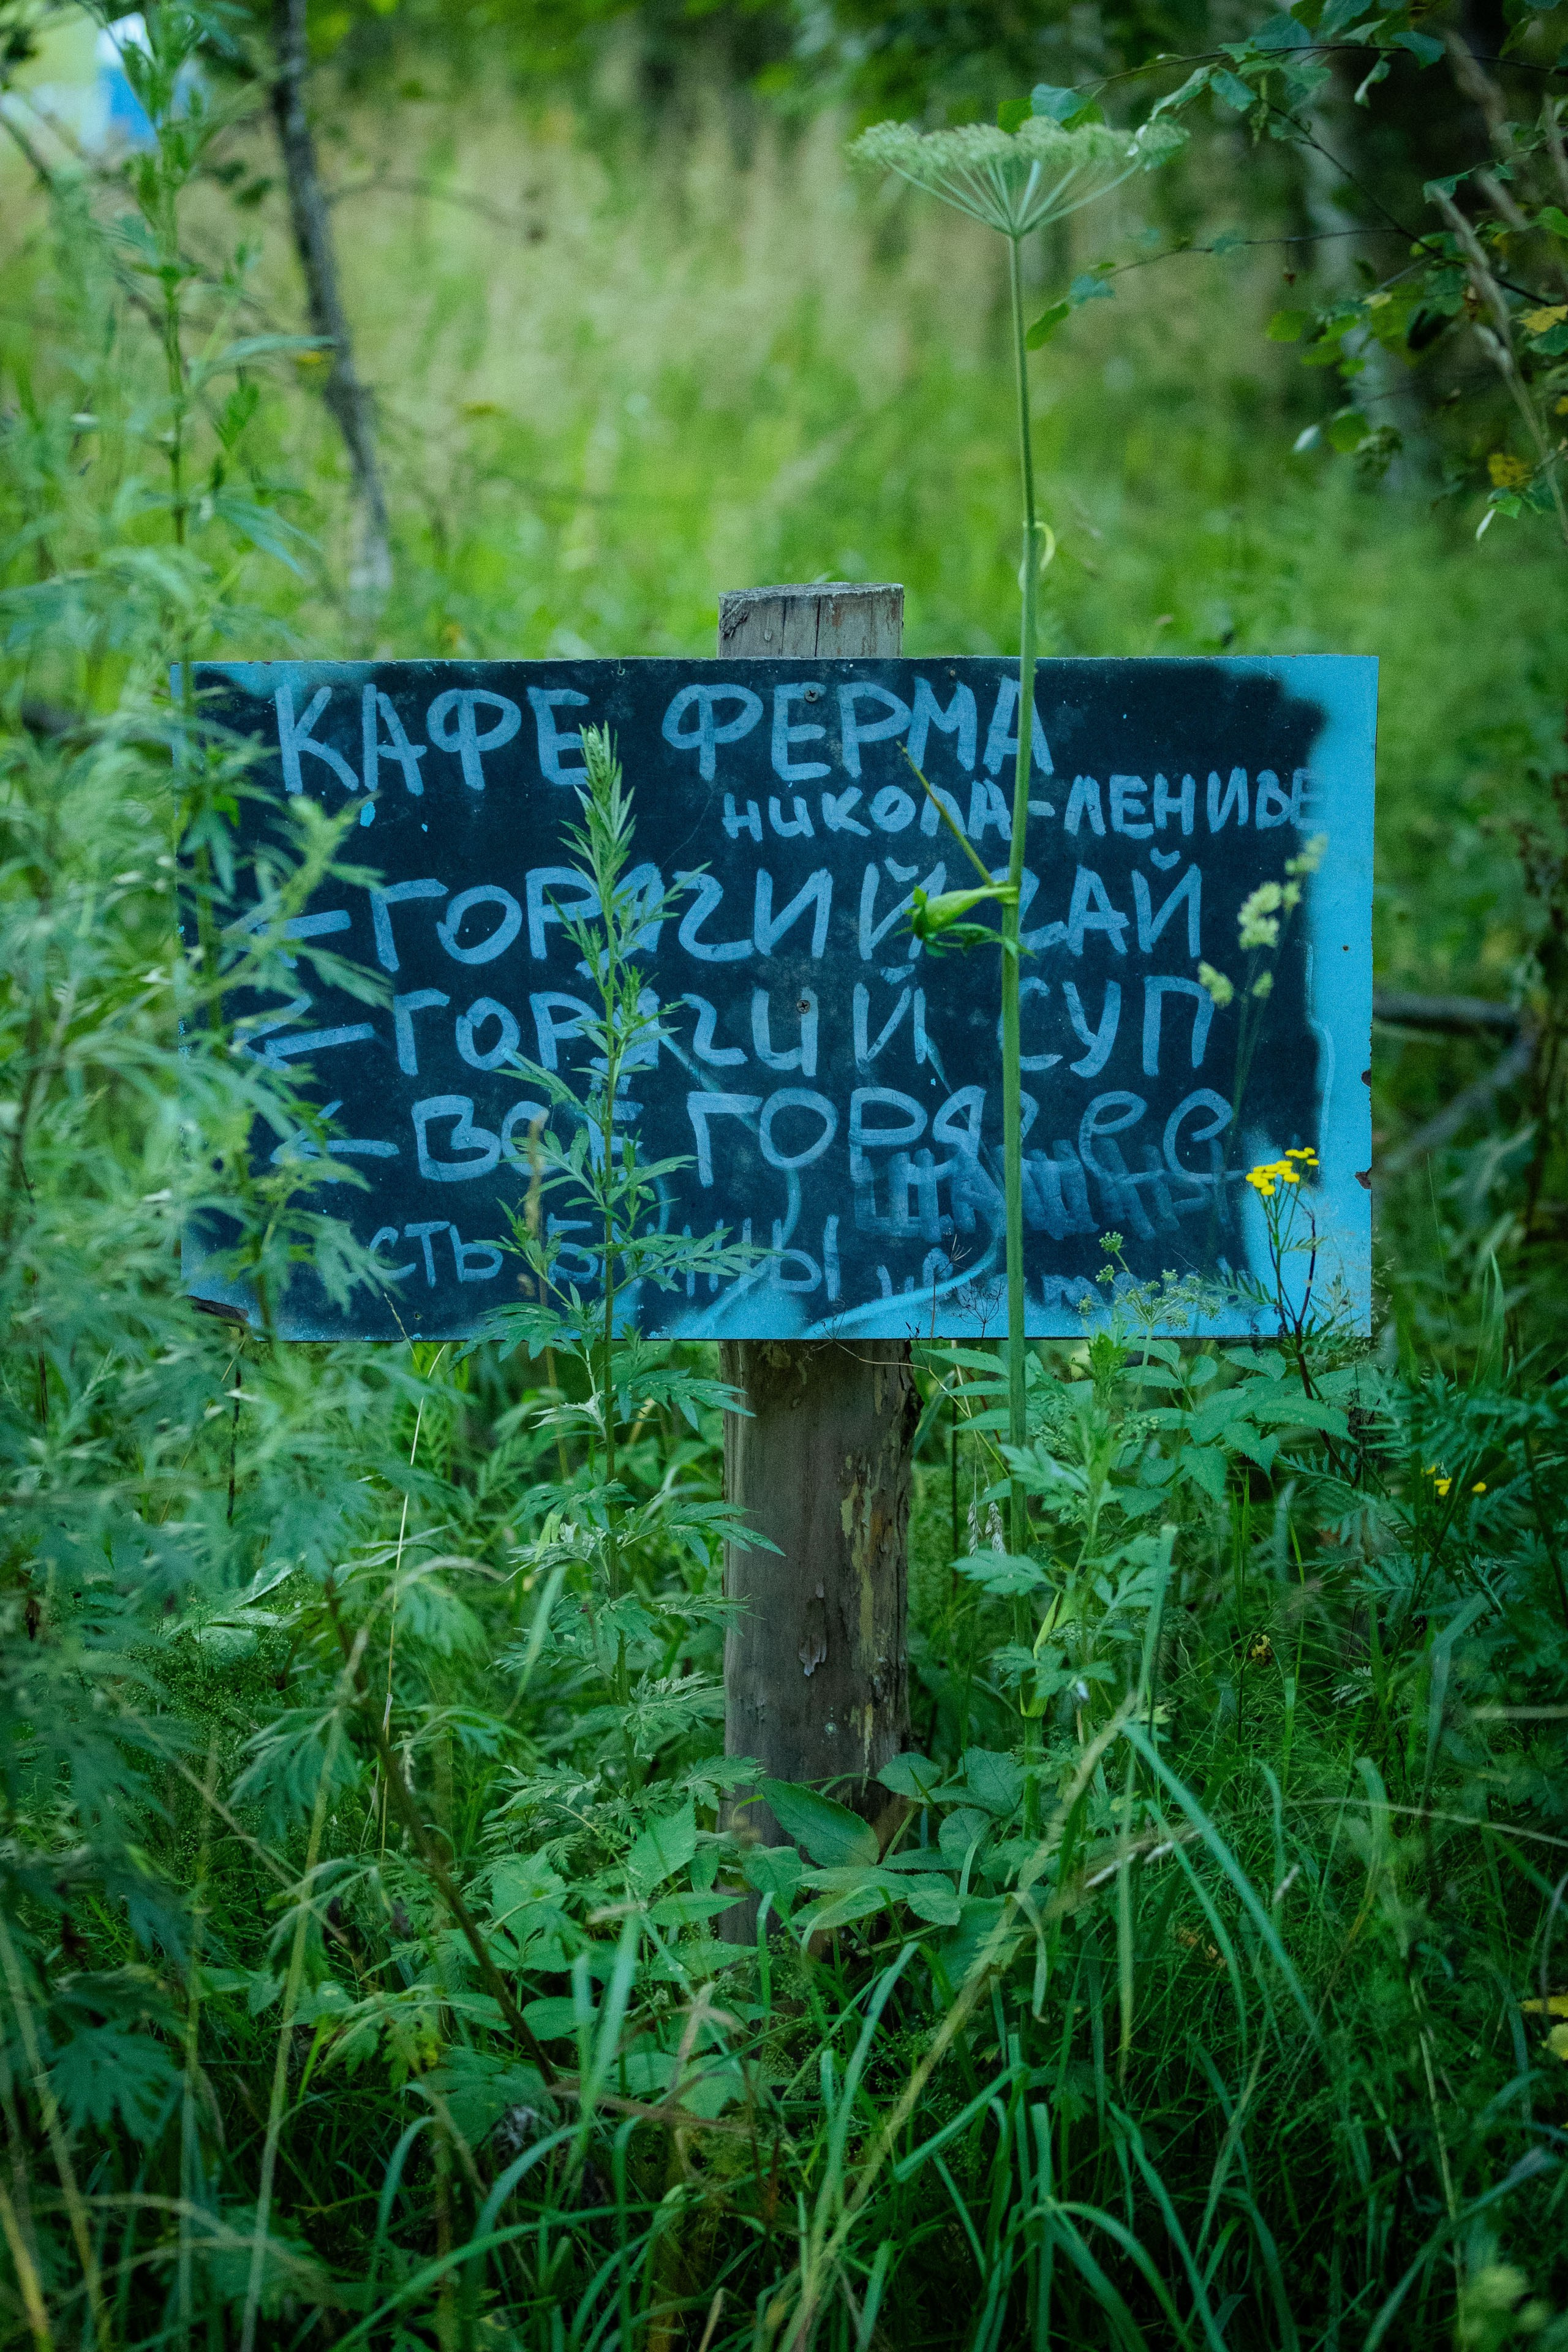 КАФЕ ФЕРМА
НИКОЛА-ЛЕНИВЕ
←ГОРЯЧИЙ ЧАЙ
←ГОРЯЧИЙ СУП
←ВСЁ ГОРЯЧЕЕ